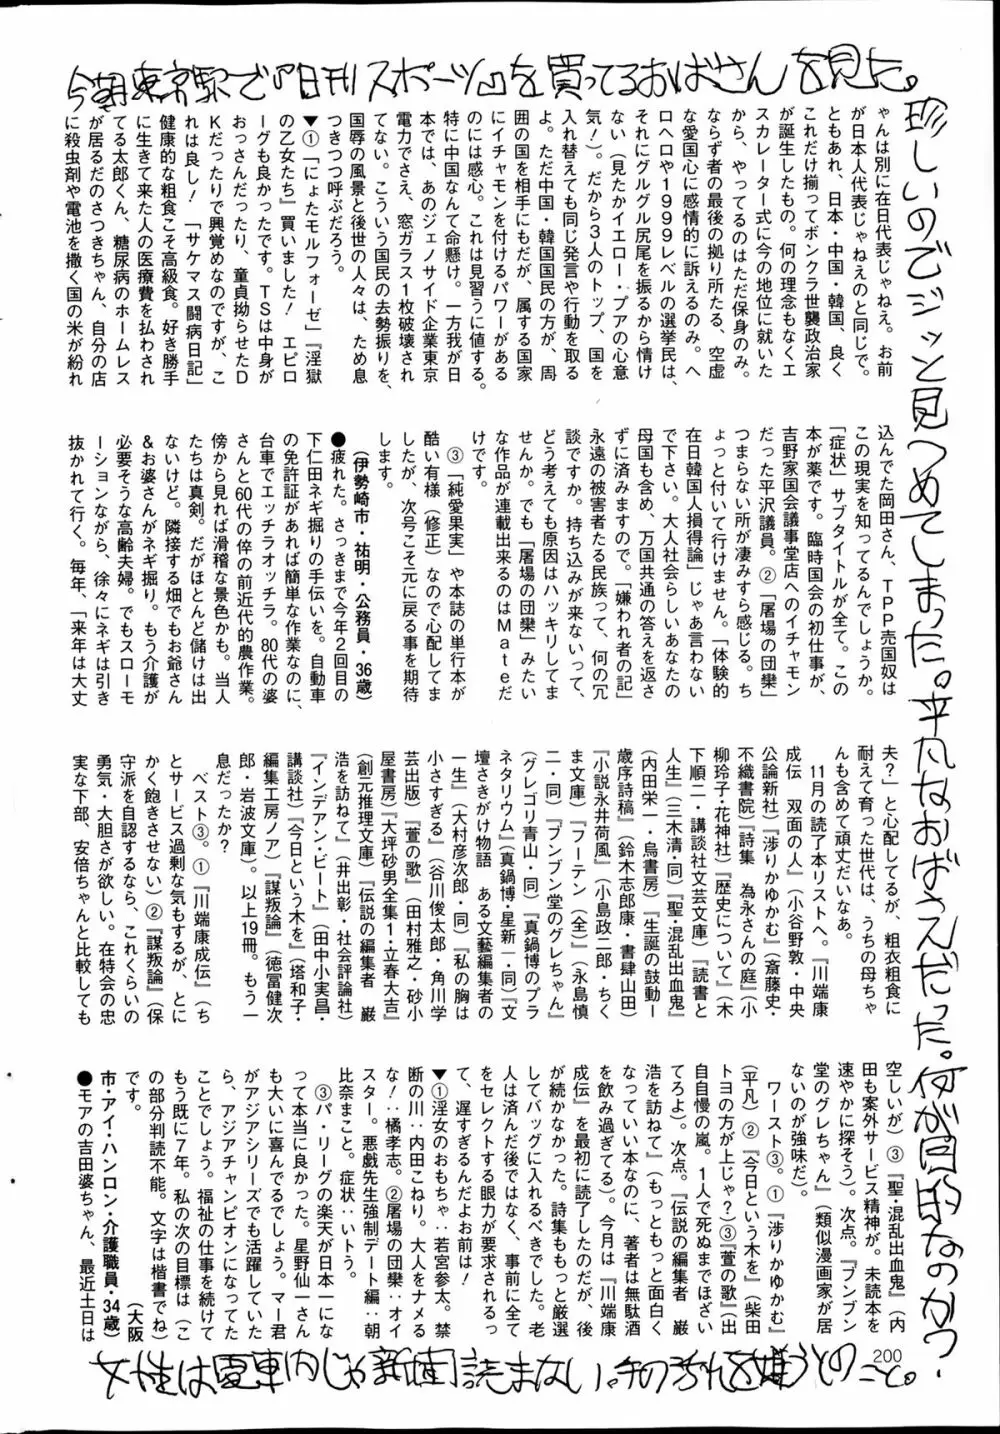 今朝東京駅で『日刊スポーツ』を買ってるおばさんを見た。
珍しいのでジッと見つめてしまった。平凡なおばさんだった。何が目的なのかっ。
ゃんは別に在日代表じゃねえ。お前
が日本人代表じゃねえのと同じで。
ともあれ、日本・中国・韓国、良く
これだけ揃ってボンクラ世襲政治家
が誕生したもの。何の理念もなくエ
スカレーター式に今の地位に就いた
から、やってるのはただ保身のみ。
ならず者の最後の拠り所たる、空虚
な愛国心に感情的に訴えるのみ。ヘ
ロヘロや1999レベルの選挙民は、
それにグルグル尻尾を振るから情け
ない（見たかイエロー・プアの心意
気！）。だから3人のトップ、国を
入れ替えても同じ発言や行動を取る
よ。ただ中国・韓国国民の方が、周
囲の国を相手にもだが、属する国家
にイチャモンを付けるパワーがある
のには感心。これは見習うに値する。
特に中国なんて命懸け。一方我が日
本では、あのジェノサイド企業東京
電力でさえ、窓ガラス1枚破壊され
てない。こういう国民の去勢振りを、
国辱の風景と後世の人々は、ため息
つきつつ呼ぶだろう。
▼①「にょたモルフォーゼ」『淫獄
の乙女たち』買いました！　エピロ
ーグも良かったです。TSは中身が
おっさんだったり、童貞拗らせたD
Kだったりで興覚めなのですが、こ
れは良し！　「サケマス闘病日記」
健康的な粗食こそ高級食。好き勝手
に生きて来た人の医療費を払わされ
てる太郎くん、糖尿病のホームレス
が居るだのさつきちゃん、自分の店
に殺虫剤や電池を撒く国の米が紛れ
込んでた岡田さん、TPP売国奴は
この現実を知ってるんでしょうか。
「症状」サブタイトルが全て。この
本が薬です。臨時国会の初仕事が、
吉野家国会議事堂店へのイチャモン
だった平沢議員。②「屠場の団欒」
つまらない所が凄みすら感じる。ち
ょっと付いて行けません。「体験的
在日韓国人損得論」じゃあ言わない
で下さい。大人社会らしいあなたの
母国も含め、万国共通の答えを返さ
ずに済みますので。「嫌われ者の記」
永遠の被害者たる民族って、何の冗
談ですか。持ち込みが来ないって、
どう考えても原因はハッキリしてま
せんか。でも、「屠場の団欒」みたい
な作品が連載出来るのはMateだ
けです。
③「純愛果実」や本誌の単行本が
酷い有様（修正）なので心配してま
したが、次号こそ元に戻る事を期待
します。
（伊勢崎市・祐明・公務員・36歳）
●疲れた。さっきまで今年2回目の
下仁田ネギ掘りの手伝いを。自動車
の免許証があれば簡単な作業なのに、
台車でエッチラオッチラ。80代の婆
さんと60代の倅の前近代的農作業。
傍から見れば滑稽な景色かも。当人
たちは真剣。だがほとんど儲けは出
ないけど。隣接する畑でもお爺さん
＆お婆さんがネギ掘り。もう介護が
必要そうな高齢夫婦。でもスローモ
ーションながら、徐々にネギは引き
抜かれて行く。毎年、「来年は大丈
夫？」と心配してるが、粗衣粗食に
耐えて育った世代は、うちの母ちゃ
んも含めて頑丈だいなあ。
11月の読了本リストへ。『川端康
成伝　双面の人』（小谷野敦・中央
公論新社）『渉りかゆかむ』（斎藤史・
不織書院）『詩集　為永さんの庭』（小
柳玲子・花神社）『歴史について』（木
下順二・講談社文芸文庫）『読書と
人生』（三木清・同）『聖・混乱出血鬼』
（内田栄一・烏書房）『生誕の鼓動－
歳序詩稿』（鈴木志郎康・書肆山田）
『小説永井荷風』（小島政二郎・ちく
ま文庫）『フーテン（全）』（永島慎
二・同）『ブンブン堂のグレちゃん』
（グレゴリ青山・同）『真鍋博のプラ
ネタリウム』（真鍋博・星新一・同）『文
壇さきがけ物語　ある文藝編集者の
一生』（大村彦次郎・同）『私の胸は
小さすぎる』（谷川俊太郎・角川学
芸出版）『萱の歌』（田村雅之・砂小
屋書房）『大坪砂男全集1・立春大吉』
（創元推理文庫）『伝説の編集者　巌
浩を訪ねて』（井出彰・社会評論社）
『インディアン・ビート』（田中小実昌・
講談社）『今日という木を』（塔和子・
編集工房ノア）『謀叛論』（徳冨健次
郎・岩波文庫）。以上19冊。もう一
息だったか？
ベスト③。①『川端康成伝』（ち
とサービス過剰な気もするが、とに
かく飽きさせない）②『謀叛論』（保
守派を自認するなら、これくらいの
勇気・大胆さが欲しい。在特会の忠
実な下部、安倍ちゃんと比較しても
空しいが）③『聖・混乱出血鬼』（内
田も案外サービス精神が。未読本を
速やかに探そう）。次点。『ブンブン
堂のグレちゃん』（類似漫画家が居
ないのが強味だ）。
ワースト③。①『渉りかゆかむ』
（平凡）②『今日という木を』（柴田
トヨの方が上じゃ？）③『萱の歌』（出
自自慢の嵐。1人で死ぬまでほざい
てろよ）。次点。『伝説の編集者　巌
浩を訪ねて』（もっともっと面白く
なっていい本なのに、著者は無駄酒
を飲み過ぎてる）。今月は『川端康
成伝』を最初に読了したのだが、後
が続かなかった。詩集ももっと厳選
してバッグに入れるべきでした。老
人は済んだ後ではなく、事前に全て
をセレクトする眼力が要求されるっ
て、遅すぎるんだよお前は！
▼①淫女のおもちゃ：若宮参太。禁
断の川：内田こねり。大人をナメる
な！：橘孝志。②屠場の団欒：オイ
スター。悪戯先生強制デート編：朝
比奈まこと。症状：いトう。
③パ・リーグの楽天が日本一にな
って本当に良かった。星野仙一さん
も大いに喜んでるでしょう。マー君
がアジアシリーズでも活躍していた
ら、アジアチャンピオンになってた
ことでしょう。福祉の仕事を続けて
もう既に7年。私の次の目標は（こ
の部分判読不能。文字は楷書でね）
です。　　　　　　　　　　　（大阪
市・アイ・ハンロン・介護職員・34歳）
●モアの吉田婆ちゃん、最近土日は
200
女性は電車内じゃ新聞読まない。手の汚れを嫌うとのこと。